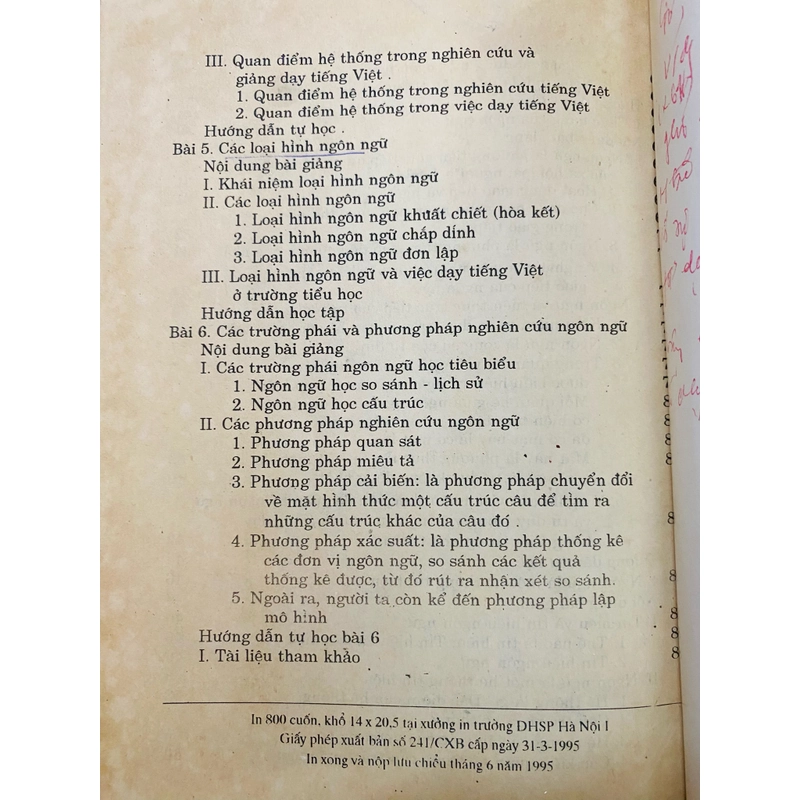 III. Quan điểm hệ thống trong nghiên cứu và
giảng dạy tiếng Việt .
1. Quan điểm hệ thống trong nghiên cứu tiếng Việt
2. Quan điểm hệ thống trong việc dạy tiếng Việt
Hướng dẫn tự học .
Bài 5. Các loại hình ngôn ngữ
Nội dung bài giảng
I. Khái niệm loại hình ngôn ngữ
II. Các loại hình ngôn ngữ
1. Loại hình ngôn ngữ khuất chiết (hòa kết)
2. Loại hình ngôn ngữ chắp dính
3. Loại hình ngôn ngữ đơn lập
III. Loại hình ngôn ngữ và việc dạy tiếng Việt
ở trường tiểu học
Hướng dẫn học tập
Bài 6. Các trường phái và phương pháp nghiên cứu ngôn ngữ
Nội dung bài giảng
I. Các trường phái ngôn ngữ học tiêu biểu
1. Ngôn ngữ học so sánh - lịch sử
2. Ngôn ngữ học cấu trúc
8
II. Các phương pháp nghiên cứu ngôn ngữ
8
1. Phương pháp quan sát
8
2. Phương pháp miêu tả
8
3. Phương pháp cải biến: là phương pháp chuyển đổi
về mặt hình thức một cấu trúc câu để tìm ra
những cấu trúc khác của câu đó .
8
4. Phương pháp xắc suất: là phương pháp thống kê
các đơn vị ngôn ngữ, so sánh các kết quả
thống kê được, từ đó rút ra nhận xét so sánh.
8
5. Ngoài ra, người ta còn kể đến phương pháp lập
mô hình
8
Hướng dẫn tự học bài 6
8
I. Tài liệu tham khảo
8
In 800 cuốn, khổ 14 x 20,5 tại xưởng in trường DHSP Hà Nội I
Giấy phép xuất bản số 241/CXB cấp ngày 31-3-1995
In xong và nộp lưu chiểu tháng 6 năm 1995